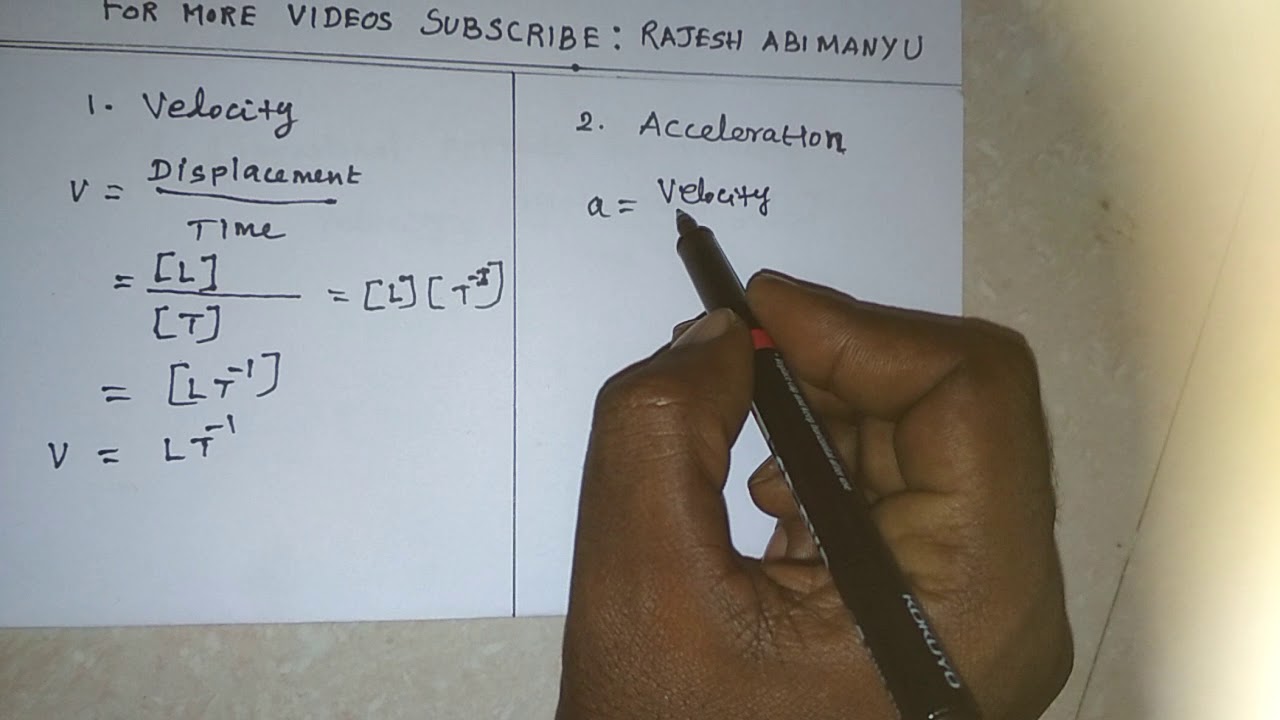 FOR MORE VIDEOS SUBSCRIBE: RAJESH ABIMANYU
1. Velocity
V = Displacement
Time
= [L]
[T]
= [L] [T⁻¹]
= [LT⁻¹]
V = LT⁻¹
2. Acceleration
a = Velocity
KOKUYO